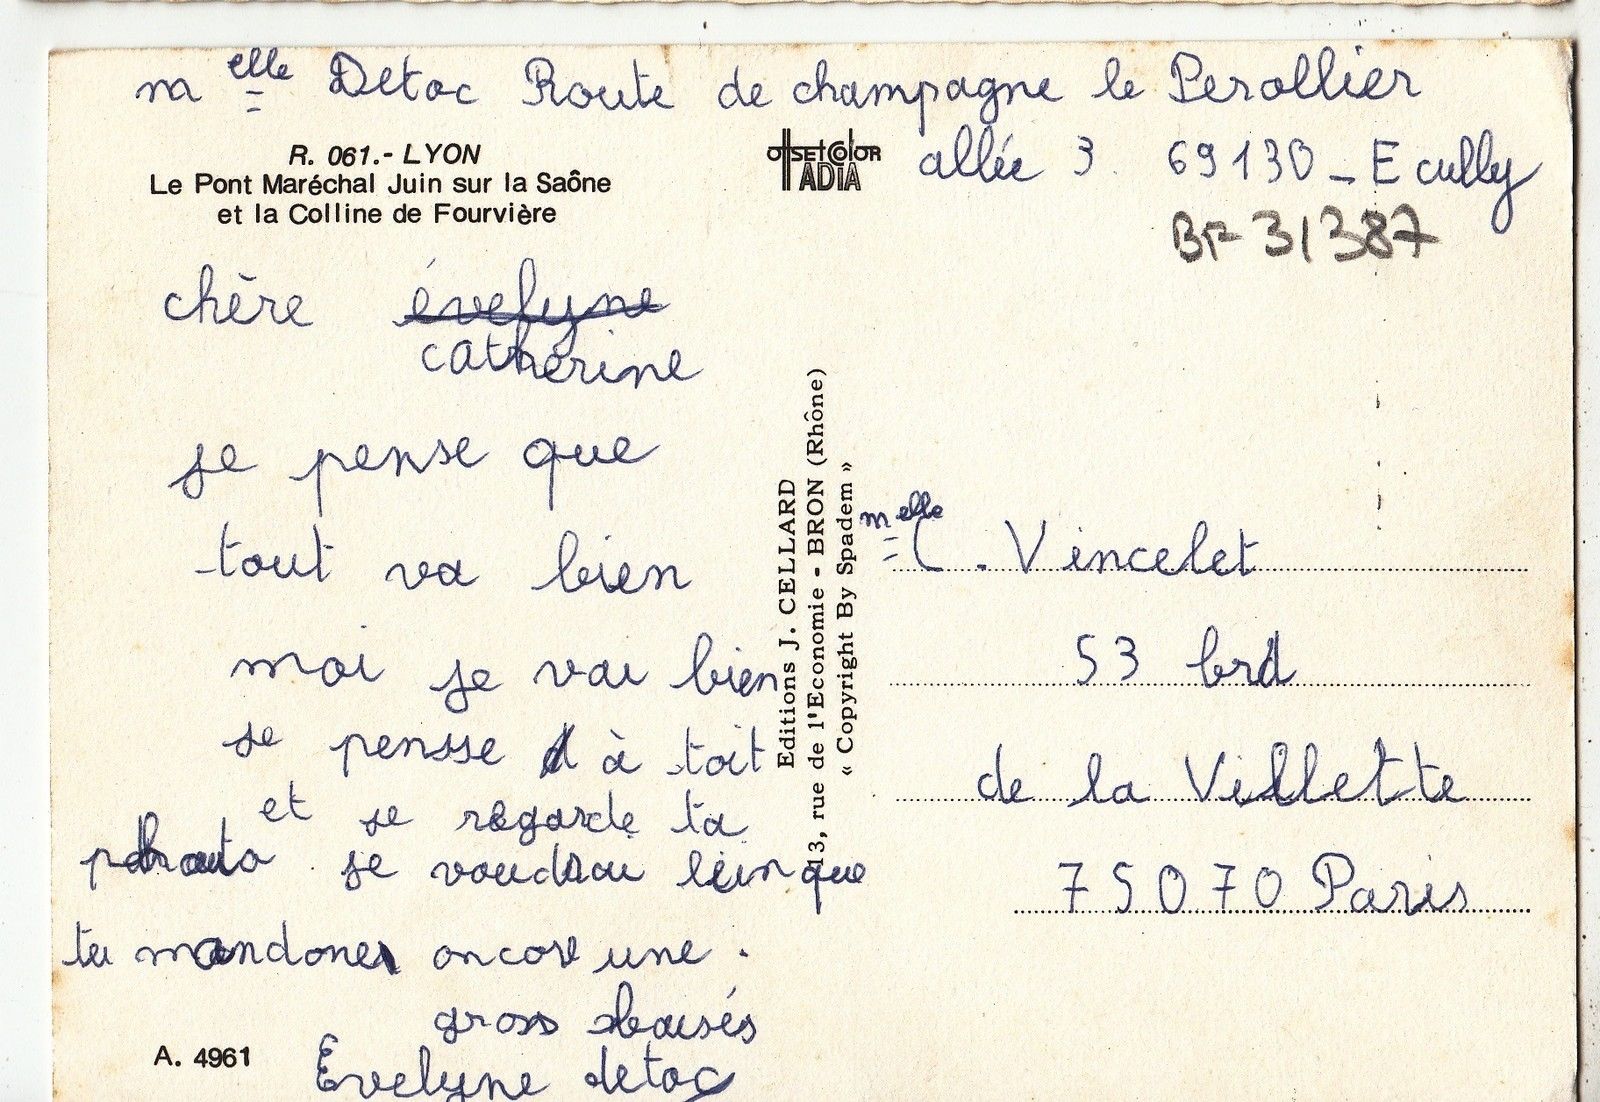 Melle Detoc Route de champagne le Perollier
allée 3. 69130 - Ecully
R. 061.- LYON
Le Pont Maréchal Juin sur la Saône
et la Colline de Fourvière
offset color
ADIA
BF 31387
chère évelyne
catherine
je pense que
tout va bien
moi je vai bien
je pensse à toit
et je regarde ta
photo je voudrai bien que
tu mandones encore une.
gross baisés
Evelyne detoc
A. 4961
Editions J. CELLARD
13, rue de l'Economie - BRON (Rhône)
« Copyright By Spadem »
melle C. Vincelet
53 brd
de la Villette
75070 Paris